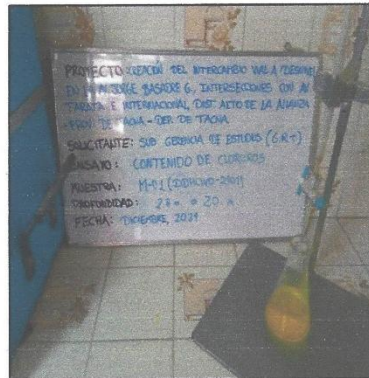 PROYECTO: CREACIÓN DEL INTERCAMBIO VIAL A DESNIVEL
AV JORGE BASADRE G. INTERSECCIONES CON AV
TARATA E INTERNACIONAL, DIST. ALTO DE LA ALIANZA
-PROV. DE TACNA - DEP. DE TACNA
SOLICITANTE: SUB GERENCIA DE ESTUDIOS (G.R.T)
ENSAYO: CONTENIDO DE CLORUROS
MUESTRA: M-01
PROFUNDIDAD:
FECHA: DICIEMBRE, 2021